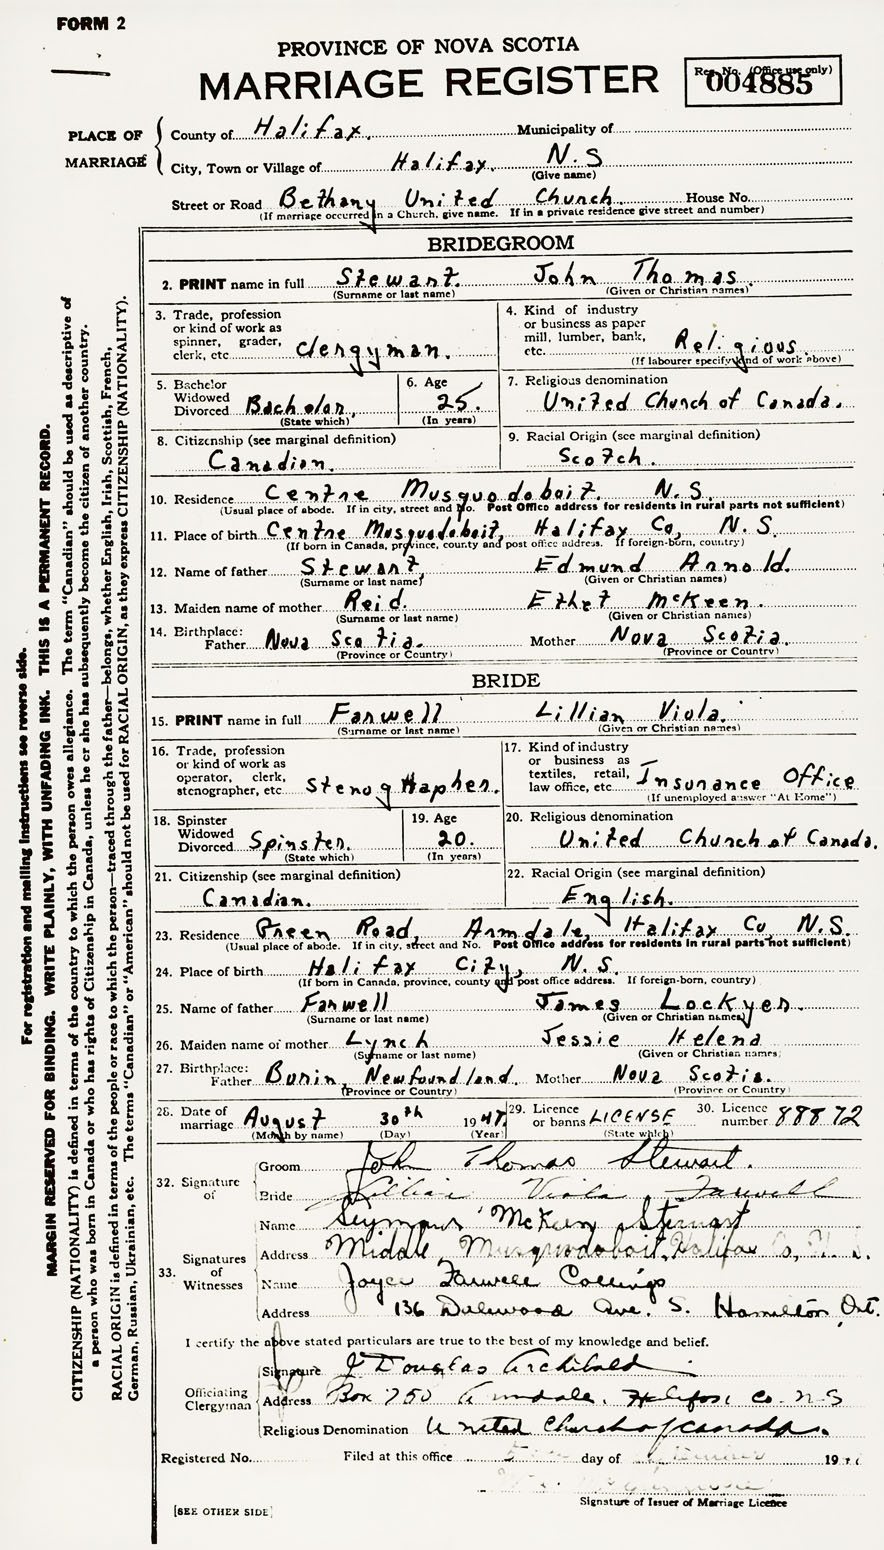 FORM 2
PROVINCE OF NOVA SCOTIA
MARRIAGE REGISTER
Reg. No. (Office use only)
004885
PLACE OF MARRIAGE
County of Halifax. Municipality of
City, Town or Village of Halifax, N.S
(Give name)
Street or Road Bethany United Church. House No.
(If marriage occurred in a Church, give name. If in a private residence give street and number)
BRIDEGROOM
2. PRINT name in full Stewart. John Thomas.
(Surname or last name) (Given or Christian names)
3. Trade, profession or kind of work as spinner, grader, clerk, etc. Clergyman.
4. Kind of industry or business as paper mill, lumber, bank, etc. Religious.
(If labourer specify kind of work above)
5. Bachelor Widowed Divorced Bachelor,
(State which)
6. Age 25.
(In years)
7. Religious denomination
United Church of Canada.
8. Citizenship (see marginal definition)
Canadian.
9. Racial Origin (see marginal definition)
Scotch.
10. Residence Centre Musquodoboit. N.S.
(Usual place of abode. If in city, street and No. Post Office address for residents in rural parts not sufficient)
11. Place of birth Centre Musquodoboit, Halifax Co, N.S.
(If born in Canada, province, county and post office address. If foreign-born, country)
12. Name of father Stewart Edmund Arnold.
(Surname or last name) (Given or Christian names)
13. Maiden name of mother Reid. Ethel McKeen.
(Surname or last name) (Given or Christian names)
14. Birthplace: Father Nova Scotia. Mother Nova Scotia.
(Province or Country) (Province or Country)
BRIDE
15. PRINT name in full Farwell Lillian Viola.
(Surname or last name) (Given or Christian names)
16. Trade, profession or kind of work as operator, clerk, stenographer, etc. Stenographer.
17. Kind of industry or business as textiles, retail, law office, etc. Insurance Office
(If unemployed answer "At Home")
18. Spinster Widowed Divorced Spinster.
(State which)
19. Age 20.
(In years)
20. Religious denomination
United Church of Canada.
21. Citizenship (see marginal definition)
Canadian.
22. Racial Origin (see marginal definition)
English.
23. Residence Green Road, Armdale, Halifax Co, N.S.
(Usual place of abode. If in city, street and No. Post Office address for residents in rural parts not sufficient)
24. Place of birth Halifax City, N.S.
(If born in Canada, province, county and post office address. If foreign-born, country)
25. Name of father Farwell James Lockyer.
(Surname or last name) (Given or Christian names)
26. Maiden name of mother Lynch Jessie Helena
(Surname or last name) (Given or Christian names)
27. Birthplace: Father Burin, Newfoundland. Mother Nova Scotia.
(Province or Country) (Province or Country)
28. Date of marriage August 30th 1947
(Month by name) (Day) (Year)
29. Licence or banns LICENSE
(State which)
30. Licence number 88872
32. Signature of
Groom John Thomas Stewart.
Bride Lillian Viola Farwell
33. Signatures of Witnesses
Name Seymour McKeen Stewart
Address Middle Musquodoboit, Halifax Co, N.S.
Name Joyce Farwell Collings
Address 136 Dulewood Ave. S. Hamilton, Ont.
I certify the above stated particulars are true to the best of my knowledge and belief.
Officiating Clergyman
Signature J Douglas Archibald
Address Box 750 Armdale, Halifax Co. N S
Religious Denomination United Church of Canada.
Registered No. Filed at this office 5 day of 19
Signature of Issuer of Marriage Licence
[SEE OTHER SIDE]
For registration and mailing instructions see reverse side.
MARGIN RESERVED FOR BINDING. WRITE PLAINLY, WITH UNFADING INK. THIS IS A PERMANENT RECORD.
CITIZENSHIP (NATIONALITY) is defined in terms of the country to which the person owes allegiance. The term "Canadian" should be used as descriptive of
a person who was born in Canada or who has rights of Citizenship in Canada, unless he or she has subsequently become the citizen of another country.
RACIAL ORIGIN is defined in terms of the people or race to which the person—traced through the father—belongs, whether English, Irish, Scottish, French,
German, Russian, Ukrainian, etc. The terms "Canadian" or "American" should not be used for RACIAL ORIGIN, as they express CITIZENSHIP (NATIONALITY).